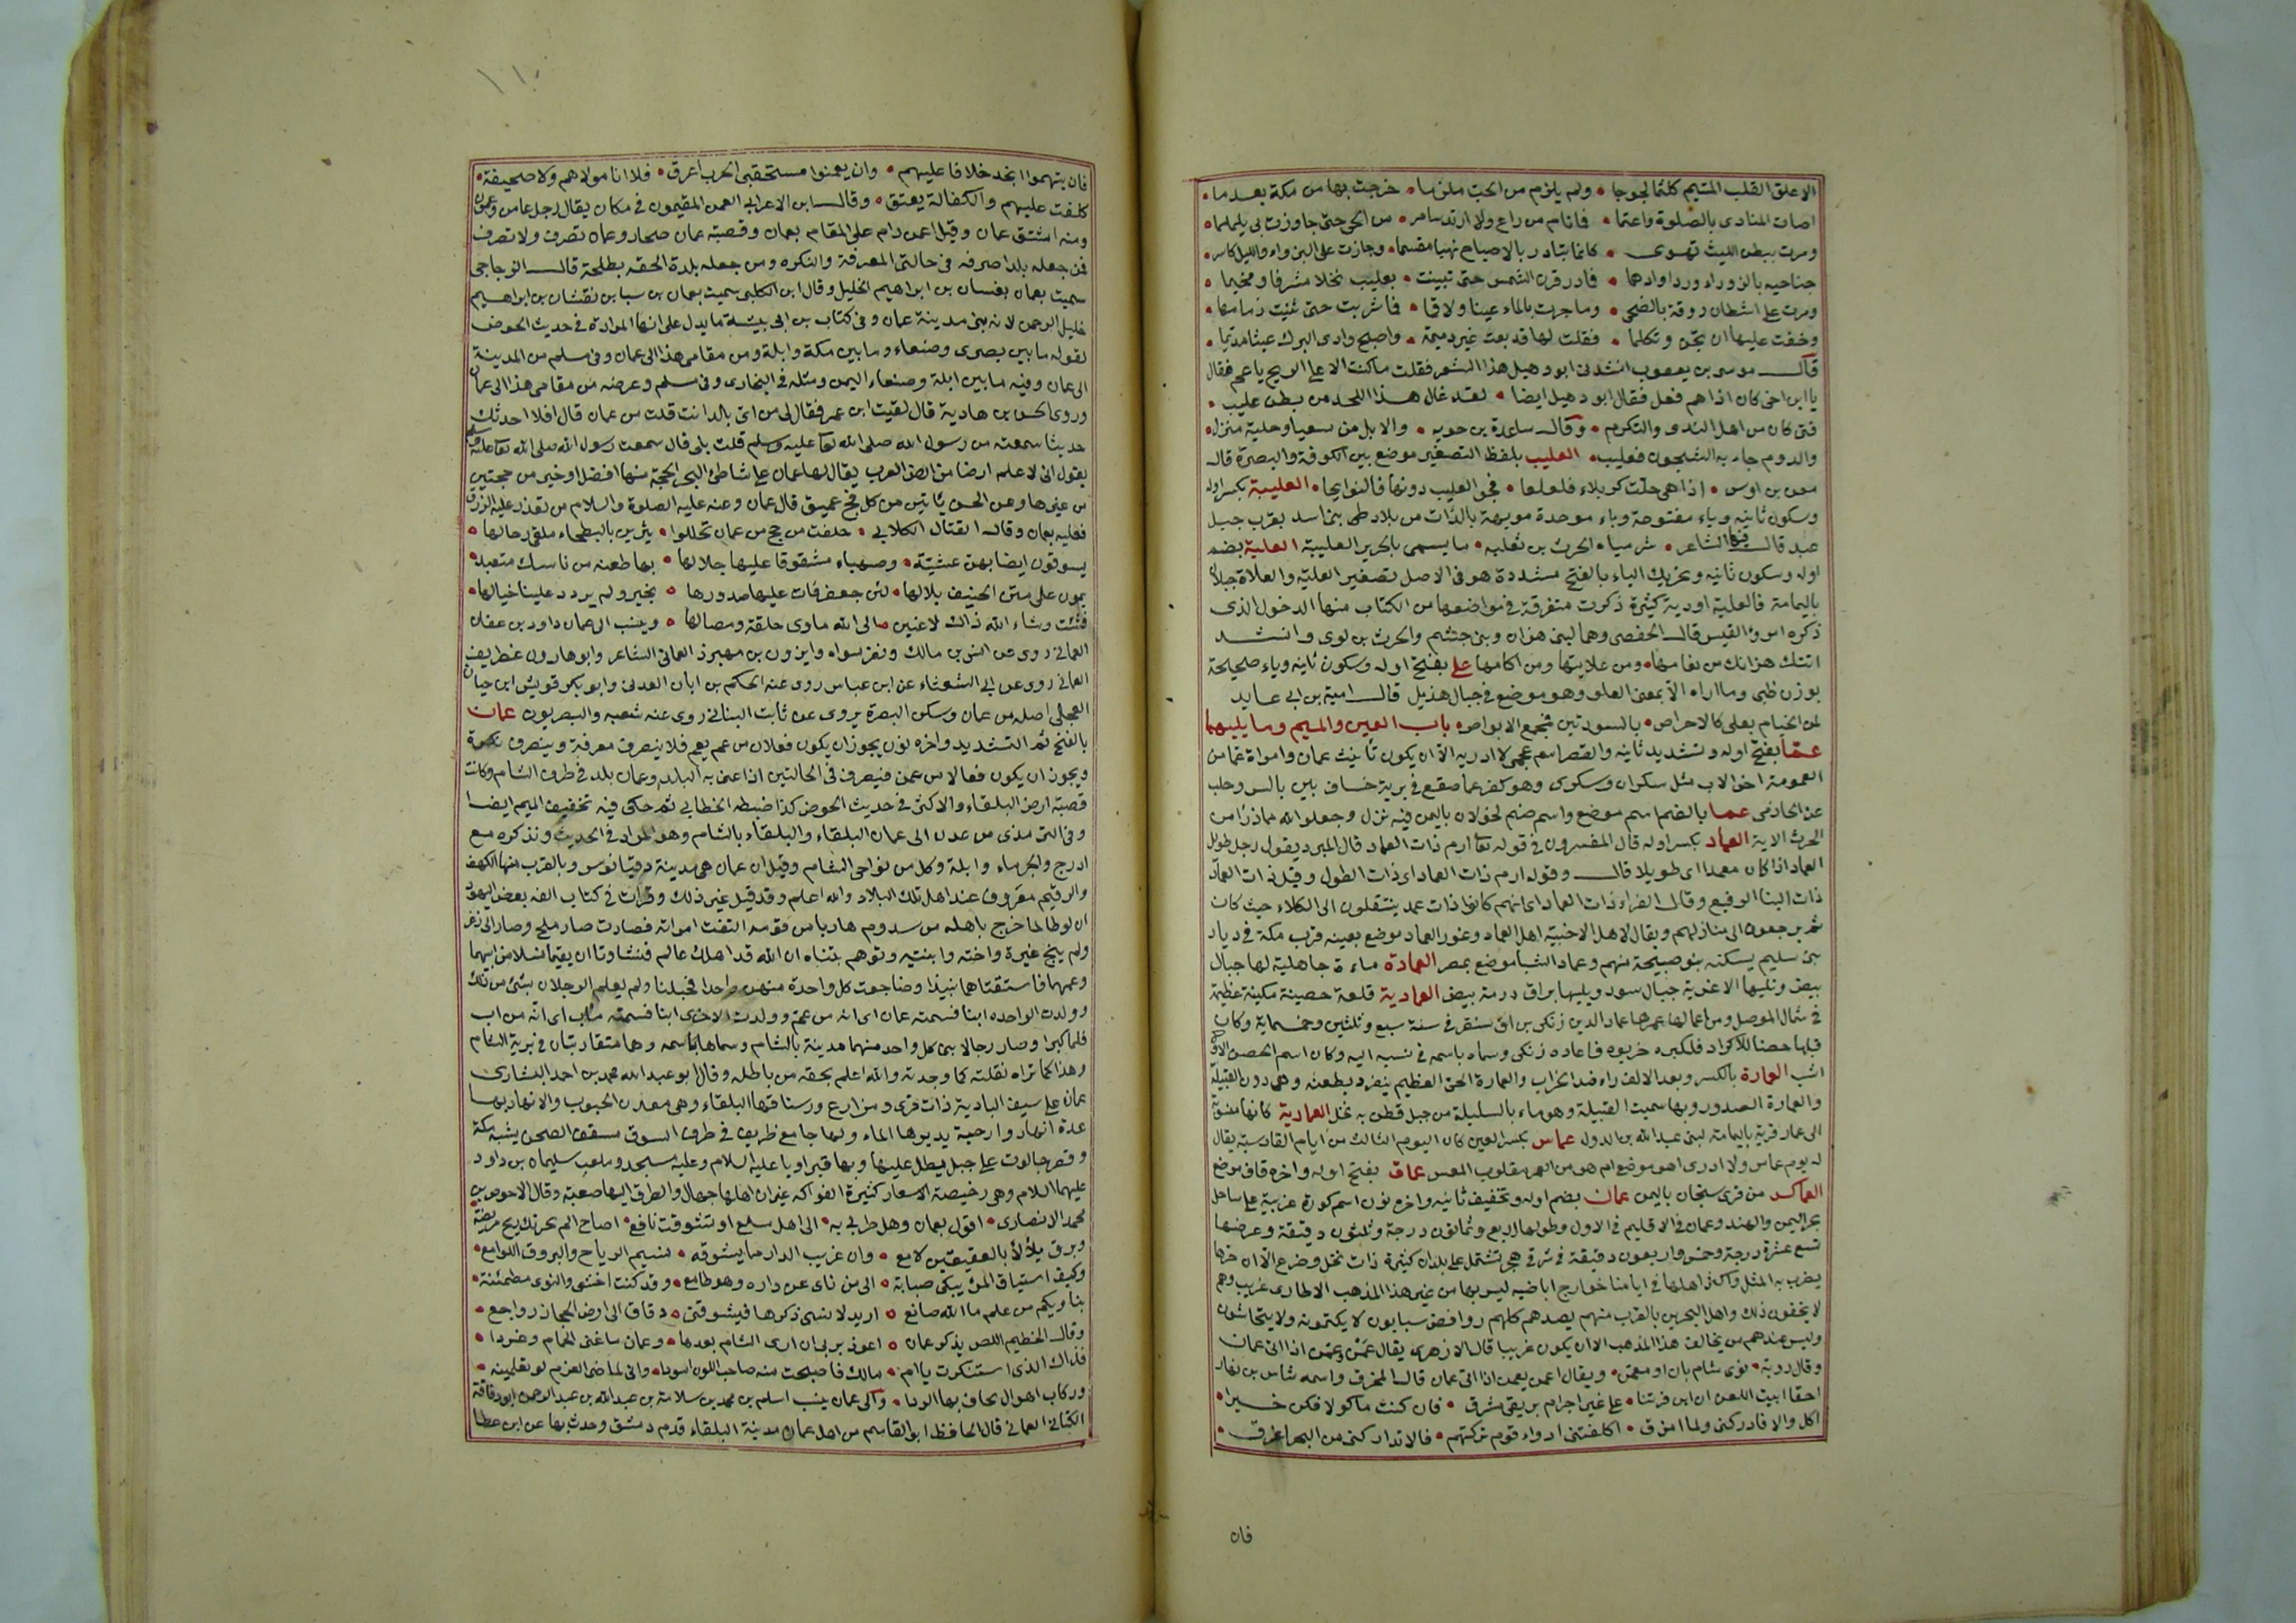 الا علق القلب المتيم كلثما لجوجا • ولم يلزم من الحب ملزما • خرجت بها من مكة بعد ما •
اصات المنادى بالصلوة واعتما • فانام من راع ولا ارتد سامر • من الحى حتى جاوزت بى يلملما •
ومرت ببطن الليث تهوى • كانما تبادر بالاصباح نهبا مقسما • وجازت على البزواء والليل كاسر •
جناحيه بالبزوراء وردا وادهما • فادر قرن الشمس حتى تبينت • بعليب نخلا مشرفا ومخيما •
ومرت على اشطان روقة بالضحى • وما جرت بالماء عينا ولا فا • فما شربت حتى ثنيت زمامها •
وخفت عليها ان تجن وتكلما • فقلت لها قد بعت غير ذميمة • واصبح وادى البرك عيثا مديما •
قال موسى بن يعقوب انشدنى ابو دهبل هذا الشعر فقلت ما كنت الا على الريح يا عم فقال
يا ابن اخى كان اذا هم فعل فقال ابو دهبل ايضا • لقد غال هذا اللحد من بطن عليب •
فتى كان من اهل الندى والتكرم • وقال ساعدة بن جويه • والابل من سعيا وحلية منزل •
والدوم جاء به الشجون فعليب • العليب بلفظ التصغير موضع بين الكوفة والبصرة قال
معن بن اوس • اذا هى حلت كربلاء فلعلعا • فجو العليب دونها فالنوايحا • العليبة بكسر اوله
وسكون ثانيه وياء مفتوحة وباء موحدة مويهة بالدات من بلاد طى بنى اسد بقرب جبل
عبد قال فيها الشاعر • شر مياه الحرث بن ثعلبه • ما يسمى بالحرير العليبة العلية بضم
اوله وسكون ثانيه وتحريك الياء بالفتح مشددة هو فى الاصل تصغير العلية والعلاة جبلان
باليمامة فالعلية اودية كثيرة ذكرت متفرقة فى مواضعها من الكتاب منها الدخول الذى
ذكره امرؤ القيس قال الحفصى وهما لبنى هزان وبنى جشم والحرث بن لوى وانشد
اتتك هزانك من نعامها • ومن علايتها ومن اكامها علي بفتح اوله وسكون ثانيه وياء صحيحة
بوزن ظبى وما اراه الا بمعنى العلو وهو موضع فى جبال هذيل قال امية بن ابى عايد
لمن الخيام بعلى كالاحراص • بالسودتين فمجمع الابواص • باب العين والميم وما يليهما
عما بفتح اوله وتشديد ثانيه والقصر اسم عجمى لا ادريه الا ان يكون تانيث عمان وامراة عما من
العمومة اخو الاب مثل سكران وسكرى وهو كفر عما صقع فى برية خساف بين بالس وحلب
عن الحازمى عما بالضم اسم موضع واسم صنم لخولان باليمن فيه نزل وجعلوا لله مما ذرأ من
الحرث الاية العماد بكسر اوله قال المفسرون فى قوله تعا ارم ذات العماد قال المبرد يقول رجل طويل
العماد اذا كان معمدا اى طويلا قال وقوله ارم ذات العماد اى ذات الطول وقيل ذات العماد
ذات البنا الرفيع وقال الفراء ذات العماد اى انهم كانوا ذات عمد ينتقلون الى الكلاء حيث كان
ثم يرجعون الى منازلهم ويقال لاهل الاخبية اهل العماد وغور العماد موضع بعينه قرب مكة فى ديار
بنى سليم يسكنه بنو صبيحة منهم وعماد الشبا موضع بمصر العمادة ماءة جاهلية لها جبال
بيض وتليها الاغربة جبال سود ويليها براق درمة بيض العمادية قلعة حصينة مكينة عظيمة
فى شمال الموصل ومن اعمالها عمرها عماد الدين زنكى بن اق سنقر فى سنة سبع وثلثين وخمسماية وكان
قبلها حصنا للاكراد فلكبره خربوه فاعاده زنكى وسماه باسمه فى نسبه اليه وكان اسم الحصن الاول
اشب العمارة بالكسر وبعد الالف راء ضد الخراب والعمارة الحى العظيم ينفرد بظعنه وهى دون القبيلة
والعمارة الصدور وبها سميت القبيلة وهو ماء بالسليلة من جبل قطن به نخل العمارية كانها منسوبة
الى عمار قرية باليمامة لبنى عبد الله بن الدول عماس بكسر العين كان اليوم الثالث من ايام القادسية يقال
له يوم عماس ولا ادرى اهو موضع ام هو من العمر مقلوب المعس عماق بفتح اوله واخره قاف موضع
العماكد من قرى سنجان باليمن عمان بضم اوله وتخفيف ثانيه واخره نون اسم كورة عربية على ساحل
بحر اليمن والهند وعمان فى الاقليم فى الاول وطولها اربع وثمانون درجة وثلثون دقيقة وعرضها
تسع عشرة درجة وخمس واربعون دقيقة فى شرقى هجر تشتمل على بلدان كثيرة ذات نخل وضرع الا ان حرها
يضرب به المثل واكثر اهلها فى ايامنا خوارج اباضيه ليس بها من غير هذا المذهب الا طارى غريب وهم
لا يخفون ذلك واهل البحرين بالقرب منهم بضدهم كلهم روافض سبابون لا يكتمونه ولا يتحاشون
وليس عندهم من يخالف هذا المذهب الا ان يكون غريبا قال الازهرى يقال عمن وعمن اذا اتى عمان
وقال روبة • نوى شام بان او معمن • ويقال اعمن يعمن اذا اتى عمان قال الممزق واسمه شاس بن نهار
احقا ابيت اللعن ان ابن فرتنا • على غير اجرام بريقى مشرق • فان كنت ماكولا فكن خير
اكل والا فادركنى ولما امزق • اكلفتنى ادواء قوم تركتهم • فالا تداركنى من البحر اغرق •
فان
١١٠
فان يتهموا انجد خلافا عليهم • وان يعمنوا مستحقبى الحرب اعرق • فلا انا مولاهم ولا صحيفة •
كلفت عليهم والكفالة يعتق • وقال ابن الاعرابى العمن المقيمون فى مكان يقال رجل عامن وعمون
ومنه اشتق عمان وقيل اعمن دام على المقام بعمان وقصبة عمان صحار وعمان تصرف ولا تصرف
فمن جعله بلدا صرفه فى حالتى المعرفة والنكره ومن جعله بلدة الحقه بطلحة قال الزجاجى
سميت بعمان بفسان بن ابراهيم الخليل وقال ابن الكلبى سميت بعمان بن سبا بن نقشان بن ابراهيم
خليل الرحمن لانه بنى مدينة عمان وفى كتاب بن ابى شيبة ما يدل على انها المرادة فى حديث الحوض
لقوله ما بين بصرى وصنعاء وما بين مكة وابلة ومن مقامى هذا الى عمان وفى مسلم من المدينة
الى عمان وفيه ما بين ابلة وصنعاء اليمن ومثله فى البخارى وفى مسلم وعرضه من مقامى هذا الى عمان
وروى الحسن بن هادية قال لقيت ابن عمر فقال لى من اى بلد انت قلت من عمان قال افلا احدثك
حديثا سمعته من رسول الله صلى الله تعا عليه وسلم قلت بلى قال سمعت رسول الله صلى الله تعا عليه وسلم
يقول انى لاعلم ارضا من ارض العرب يقال لها عمان على شاطئ البحر الحجة منها افضل او خير من حجتين
من غيرها وعن الحسن ياتين من كل فج عميق قال عمان وعنه عليه الصلوة والسلام من تعذر عليه الرزق
فعليه بعمان وقال القتال الكلابى • حلفت من حج من عمان تحللوا • بئرين بالبطحاء ملقى رحالها •
يسوقون ايضا بهن عشية • وصهباء مشقوقا عليها جلالها • بها طعنه من ناسك متعبد •
يمون على متن الحنيف بلالها • لئن جعفر فات عليها صدورها • بخير ولم يردد علينا خيالها •
فشئت وشاء الله ذاك لاعنين • الى الله ماوى خلقة ومصالها • وينسب الى عمان داود بن عفان
العمانى روى عن انس بن مالك ونفر سواه وابزون بن مهبرذ العمانى الشاعر وابو هارون غطريف
العمانى روى عن ابى الشعثاء عن ابن عباس روى عنه الحكم بن ابان العدنى وابو بكر قريش ابن حيان
العجلى اصله من عمان وسكن البصرة يروى عن ثابت البنانى روى عنه شعبه والبصريون عمان
بالفتح ثم التشديد واخره نون يجوز ان يكون فعلان من عم يعم فلا ينصرف معرفة وينصرف نكرة
ويجوز ان يكون فعالا من عمن فينصرف فى الحالتين اذا عنى به البلد وعمان بلد فى طرف الشام وكانت
قصبة ارض البلقاء والاكثر فى حديث الحوض كذا ضبطه الخطابى ثم حكى فيه تخفيف الميم ايضا
وفى الترمذى من عدن الى عمان البلقاء والبلقاء بالشام وهو المراد فى الحديث وتذكره مع
ادرج والجرباء وابلة وكل من نواحى الشام وقيل ان عمان هى مدينة دقيانوس وبالقرب منها الكهف
والرقيم معروف عند اهل تلك البلاد والله اعلم وقد قيل غير ذلك وقرات فى كتاب الفه بعض اليهود
ان لوطا لما خرج باهله من سدوم هاربا من قومه التفتت امراته فصارت صار ملح وصار الى زغر
ولم ينج غيره واخته وابنتيه وتوهم بنتاه ان الله قد اهلك عالم فتشاورتا ان يقيما نسلا من ابيهما
وعمهما فاستقتاهما نبيذا وضاجعت كل واحدة منهن واحدا فحبلتا ولم يعلم الرجلان بشئ من ذلك
وولدت الواحده ابنا فسمته عمان اى انه من عم وولدت الاخرى ابنا فسمته ماب اى انه من اب
فلما كبرا وصار رجالا بنى كل واحد منهما مدينة بالشام وسماها باسمه وهما متقاربتان فى برية الشام
وهذا كما تراه نقلته كما وجدته والله اعلم بحقه من باطله وقال ابو عبد الله محمد بن احمد البشارى
عمان على سيف البادية ذات قرى ومزارع ورستاقها البلقاء وهى معدن الحبوب والانهار بها
عدة انهار وارحية يديرها الماء ولها جامع ظريف فى طرف السوق مسقف الصحن يشبه مكة
وقصر جالوت على جبل يطل عليها وبها قبر اوريا عليه السلام وعليه مسجد وملعب سليمان بن داود
عليهما السلام وهى رخيصة الاسعار كثيرة الفواكه غير ان اهلها جهال والطرق اليها صعبة وقال الاحوص بن
محمد الانصارى • اقول بعمان وهل طربى به • الى اهل سلع ان تشوقت نافع • اصاح الم يحزنك ريح مريضة
وبرق يلألأ بالعقيقين لامع • وان غريب الدار مما يشوقه • نسيم الرياح والبروق اللوامع •
وكيف اشتياق المرء يبكى صبابة • الى من ناى عن داره وهو طامع • وقد كنت اخشى والنوى مطمئنة •
بنا وبكم من علم ما الله صانع • اريد لانسى ذكرها فيشوقنى • دقاق الى ارض الحجاز رواجع •
وقال الخطيم اللص يذكر عمان • اعوذ بربى ان ارى الشام بعدها • وعمان ما غنى الحمام وغردا •
فذاك الذى استنكرت يا ام • مالك فاصبحت منه صاحب اللون اسودا • وانى لماضى العزم لو تعلمينه •
وركاب اهوال يخاف بها الردا • والى عمان ينسب اسلم بن محمد بن سلامة بن عبد الله بن عبد الرحمن ابو دفافة
الكنانى العمانى قال الحافظ ابو القاسم من اهل عمان مدينة البلقاء قدم دمشق وحدث بها عن ابن عطا